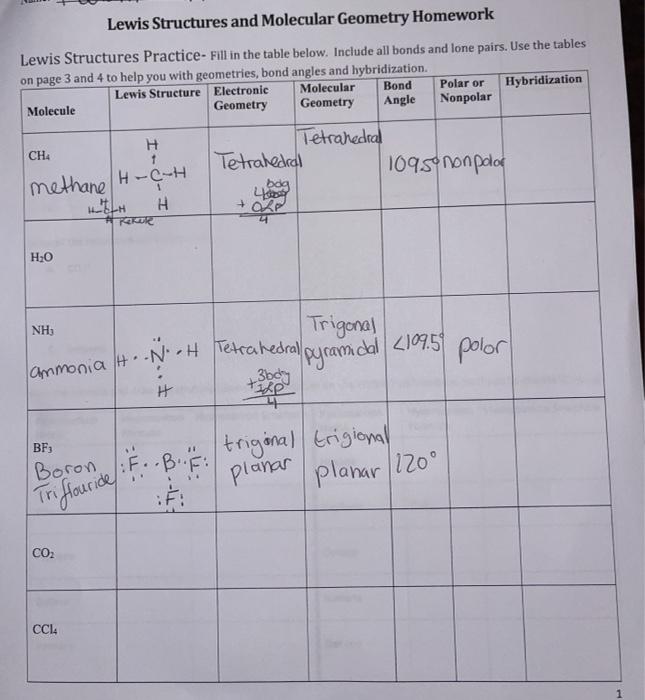 Lewis Structures and Molecular Geometry Homework
Lewis Structures Practice- Fill in the table below. Include all bonds and lone pairs. Use the tables
on page 3 and 4 to help you with geometries, bond angles and hybridization.
Molecule Lewis Structure Electronic Geometry Molecular Geometry Bond Angle Polar or Nonpolar Hybridization
CH₄
methane
H
H-C-H
H
Tetrahedral
Tetrahedral
109.5°
nonpolar
+ 0LP
4
H₂O
NH₃
ammonia
H··N··H
H
Tetrahedral
3bdg
+1LP
4
Trigonal
pyramidal
<109.5°
polor
BF₃
Boron
Triflouride
:F··B··F:
:F:
trigonal
planar
trigional
planar
120°
CO₂
CCl₄
1